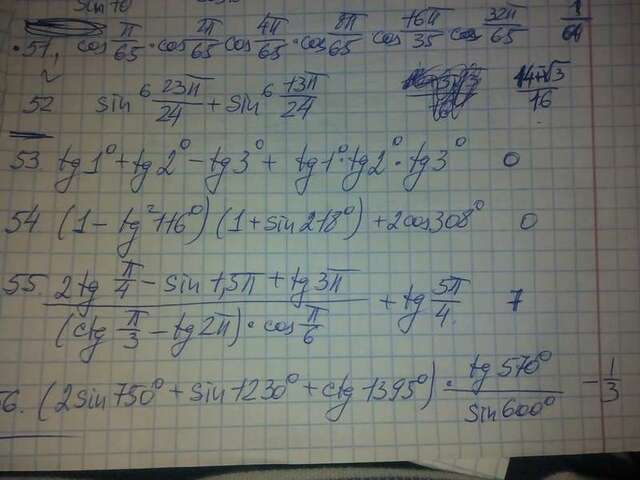 sin 10
51. cos π/65 · cos 2π/65 cos 4π/65 · cos 8π/65 cos 16π/35 cos 32π/65 1/64
52 sin⁶ 23π/24 + sin⁶ 13π/24 14-√3/16
53 tg1° + tg2° - tg3° + tg1° · tg2° · tg3° 0
54 (1 - tg²116°)(1 + sin218°) + 2cos308° 0
55. 2tg π/4 - sin1,5π + tg3π / (ctg π/3 - tg2π) · cos π/6 + tg 5π/4 7
6. (2sin750° + sin1230° + ctg1395°) · tg570°/sin600° -1/3